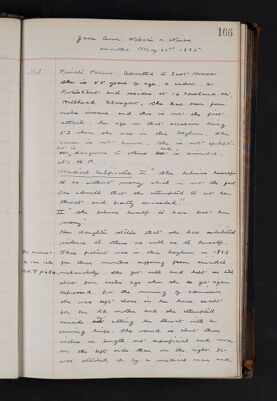 166
Jane Anne Webster or Nixon
admitted May 21st 1895
Private Patient. Admitted to East House.
She is 55 years of age, a widow, a
Protestant and resided at 14
Hillhead, Glasgow. She has been four
weeks insane and this is not the first
attack, her age on that occasion being
53 when she was in this Asylum. The
cause is not known. She is not epileptic
nor dangerous to others but is suicidal.
Medical Certificates I "She believes herself
to be without money which is not the fact
She admits that she attempted to cut her
throat and partly succeeded."
II "She believes herself to have lost her
money"
Her daughter states that she has exhibited
violence to others as well as to herself.
This patient was in this Asylum in 1893
for three months suffering from suicidal
melancholia. She got well and kept so till
about four weeks ago when she so got again
depressed. On the morning of admission
she was left alone in her house except
for her old mother and she attempted
suicide by cutting her throat with a
carving knife. The wound is about three
inches in length not superficial and more
on the left side than on the right. It
was stitched up by a medical man and